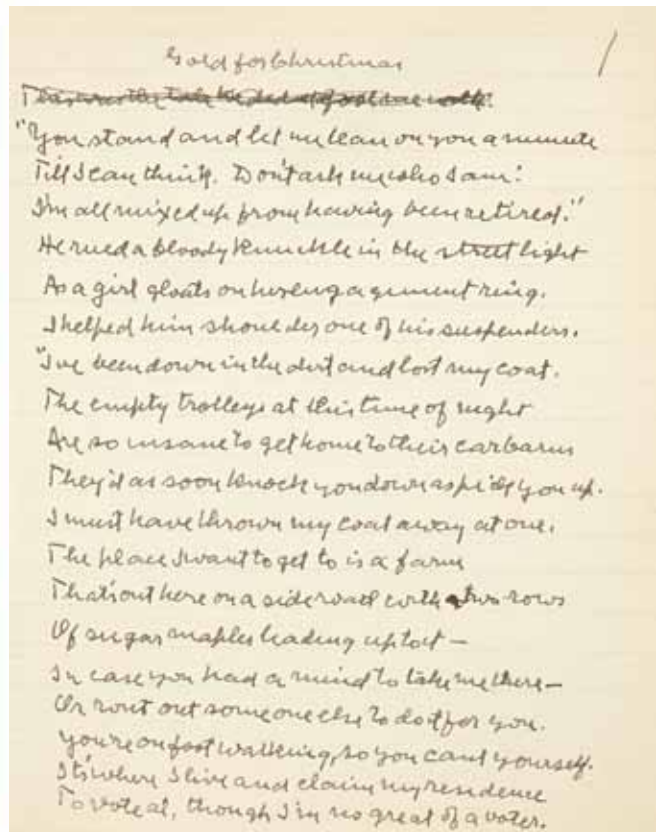 Gold for Christmas
1
"You stand and let me lean on you a minute
Till I can think. Don't ask me who I am!
I'm all mixed up from having been retired."
He rued a bloody knuckle in the street light
As a girl gloats on her engagement ring.
I helped him shoulder one of his suspenders.
"I've been down in the dirt and lost my coat.
The empty trolleys at this time of night
Are so insane to get home to their carbarns
They'd as soon knock you down as pick you up.
I must have thrown my coat away at one.
The place I want to get to is a farm
That's out here on a side road with two rows
Of sugar maples leading up to it —
In case you had a mind to take me there —
Or rout out someone else to do it for you.
You're on foot walking, so you can't yourself.
It's where I live and claim my residence
To vote at, though I'm no great of a voter.